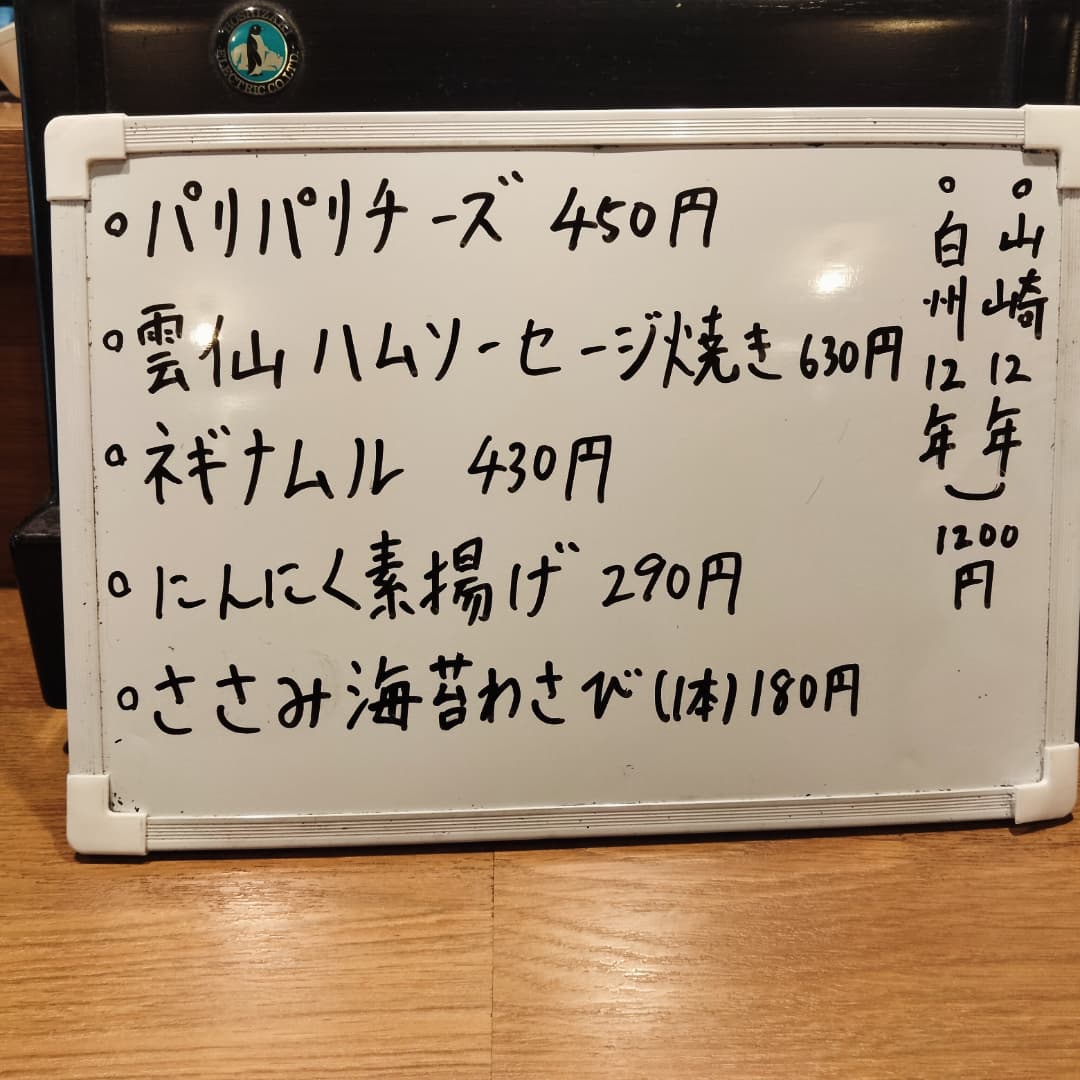 HOSHIZAKI ELECTRIC CO.LTD.
○パリパリチーズ 450円
○雲仙ハムソーセージ焼き 630円
○ネギナムル 430円
○にんにく素揚げ 290円
○ささみ海苔わさび(1本)180円
○山崎12年
○白州12年
1200円